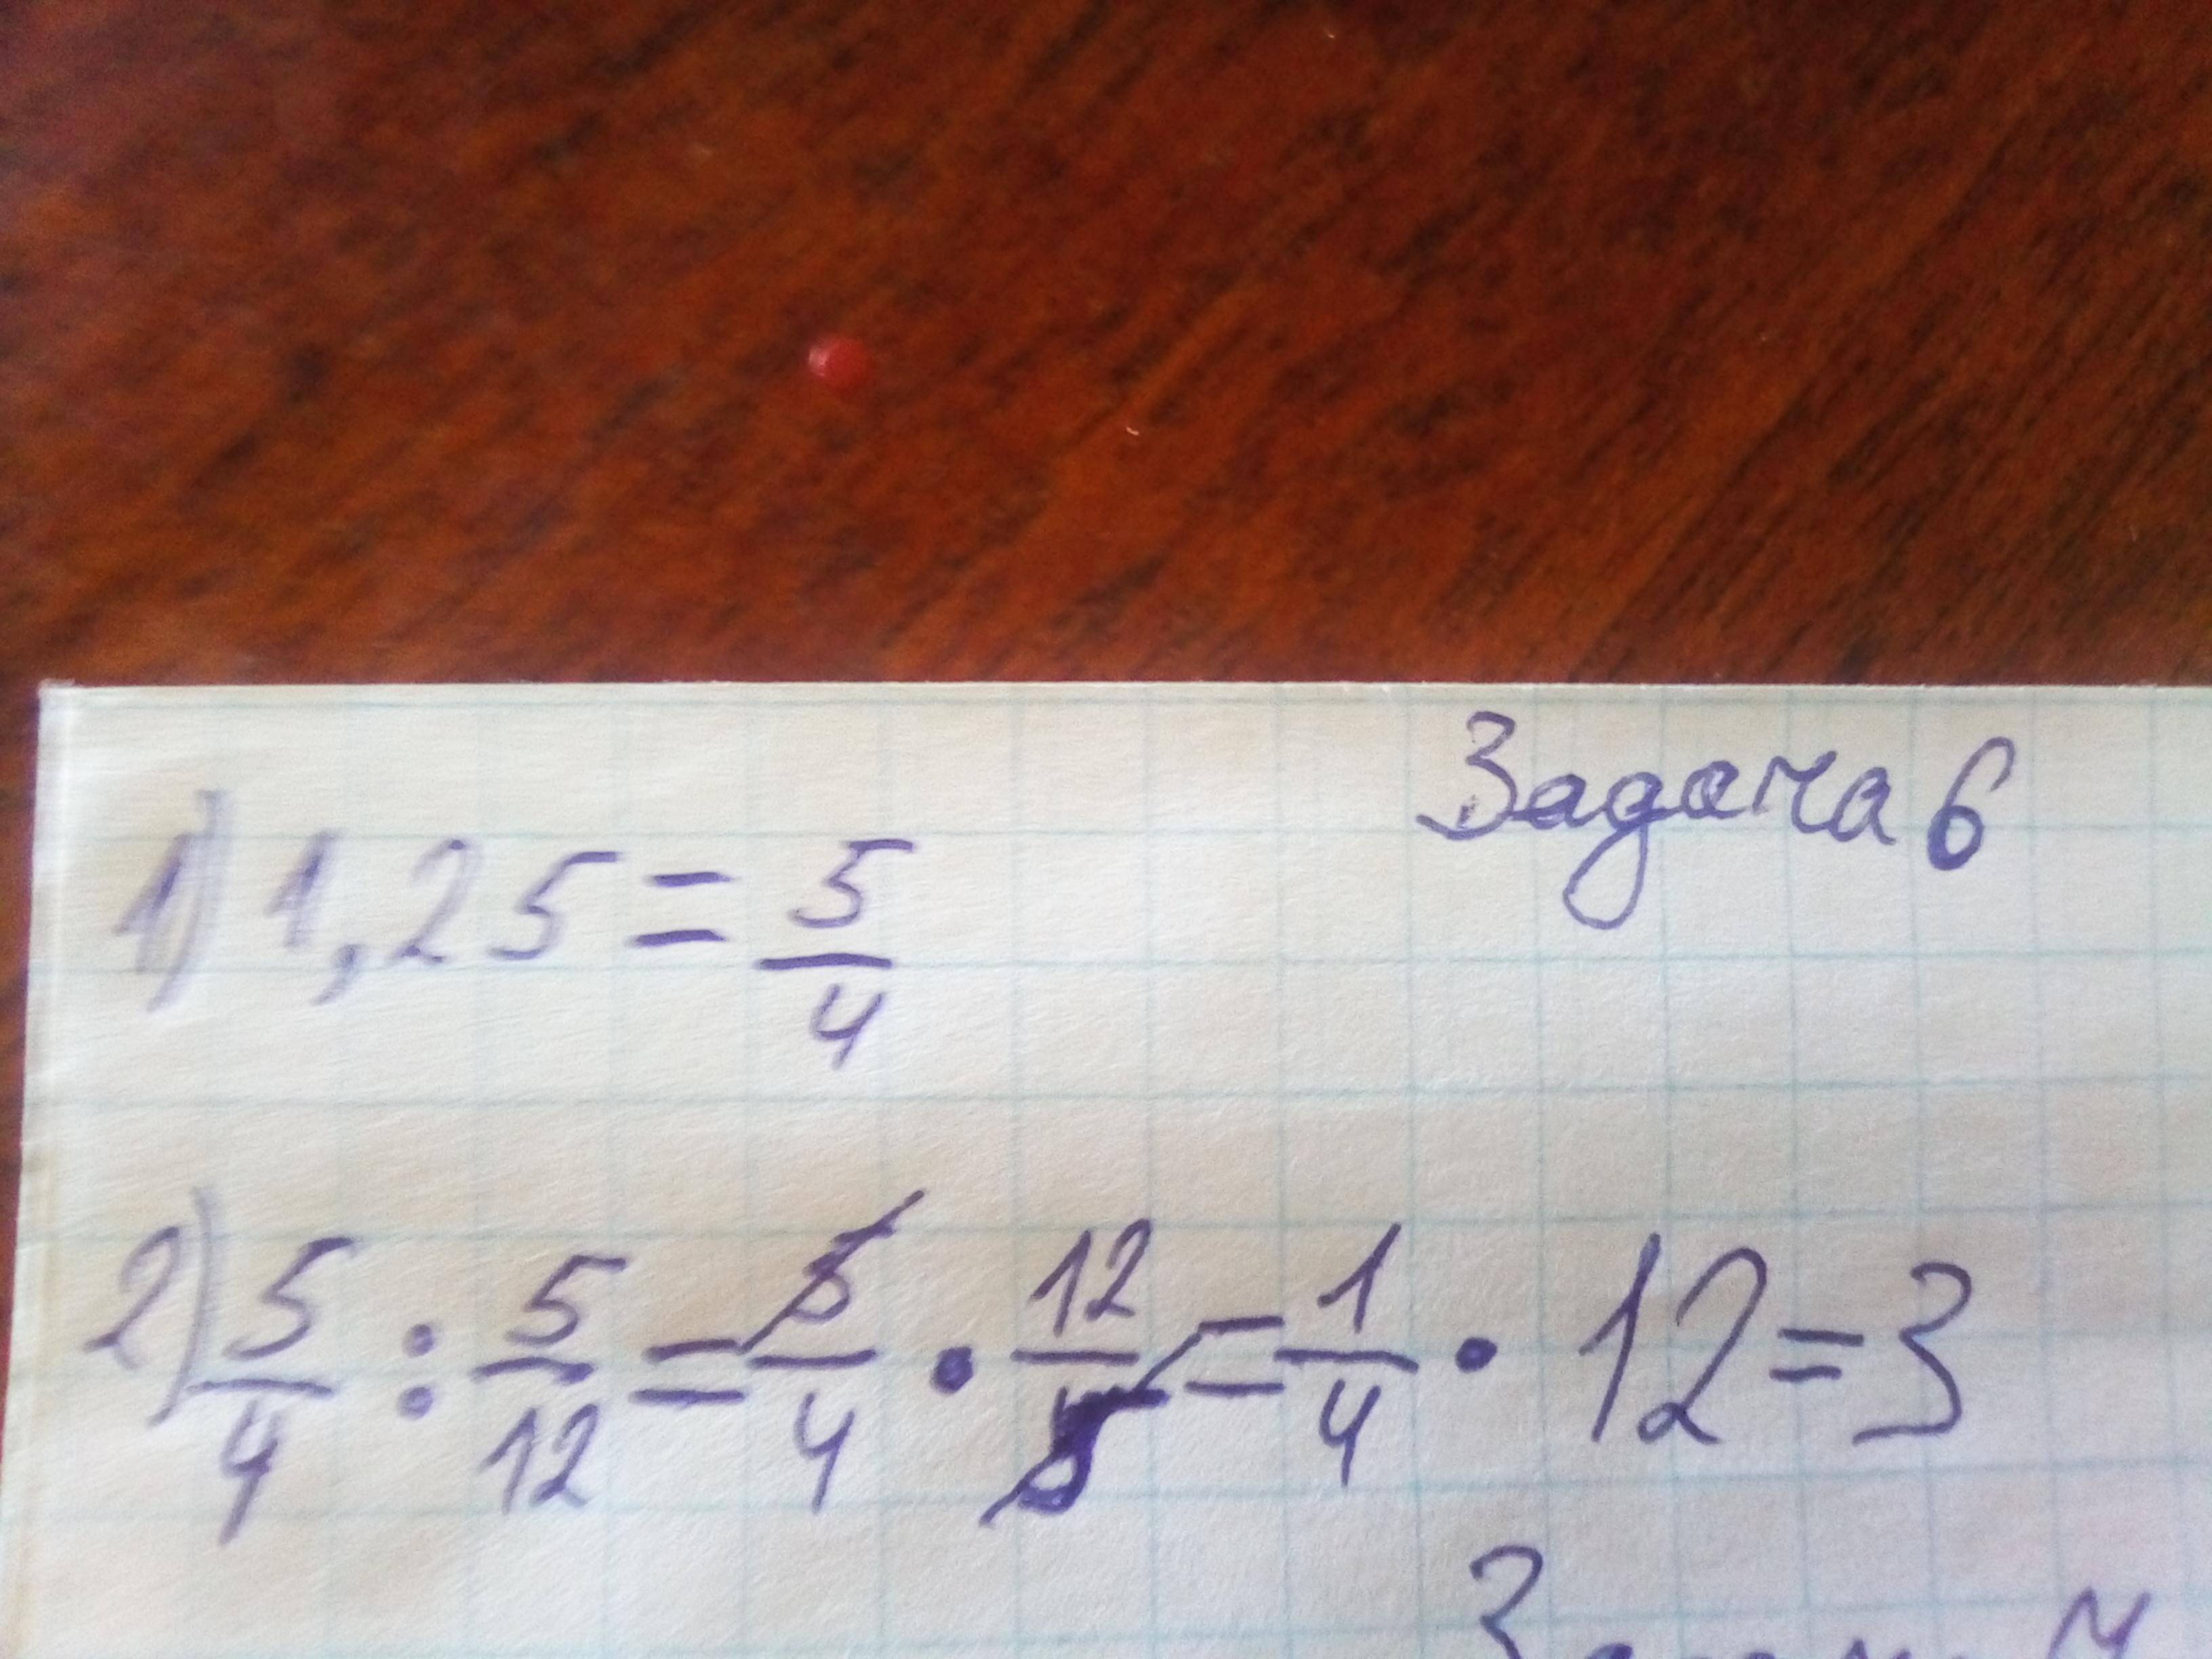 Задача 6
1) 1,25 = 5/4
2) 5/4 : 5/12 = 5/4 • 12/5 = 1/4 • 12 = 3